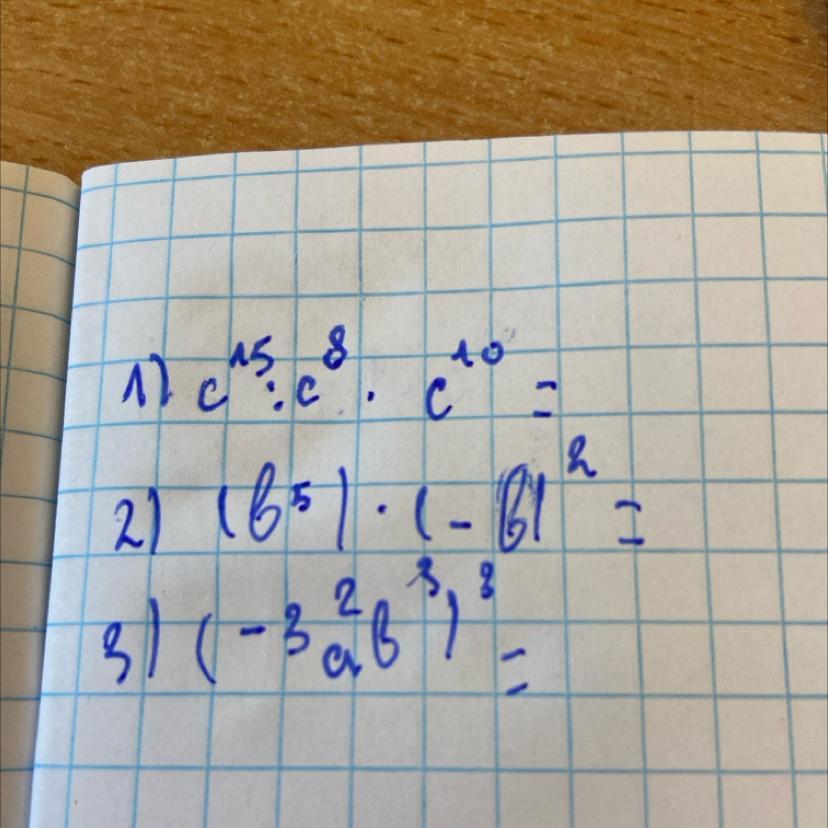 1) c¹⁵ : c⁸ · c¹⁰ =
2) (b⁵) · (-b)² =
3) (-3a²b³)³ =